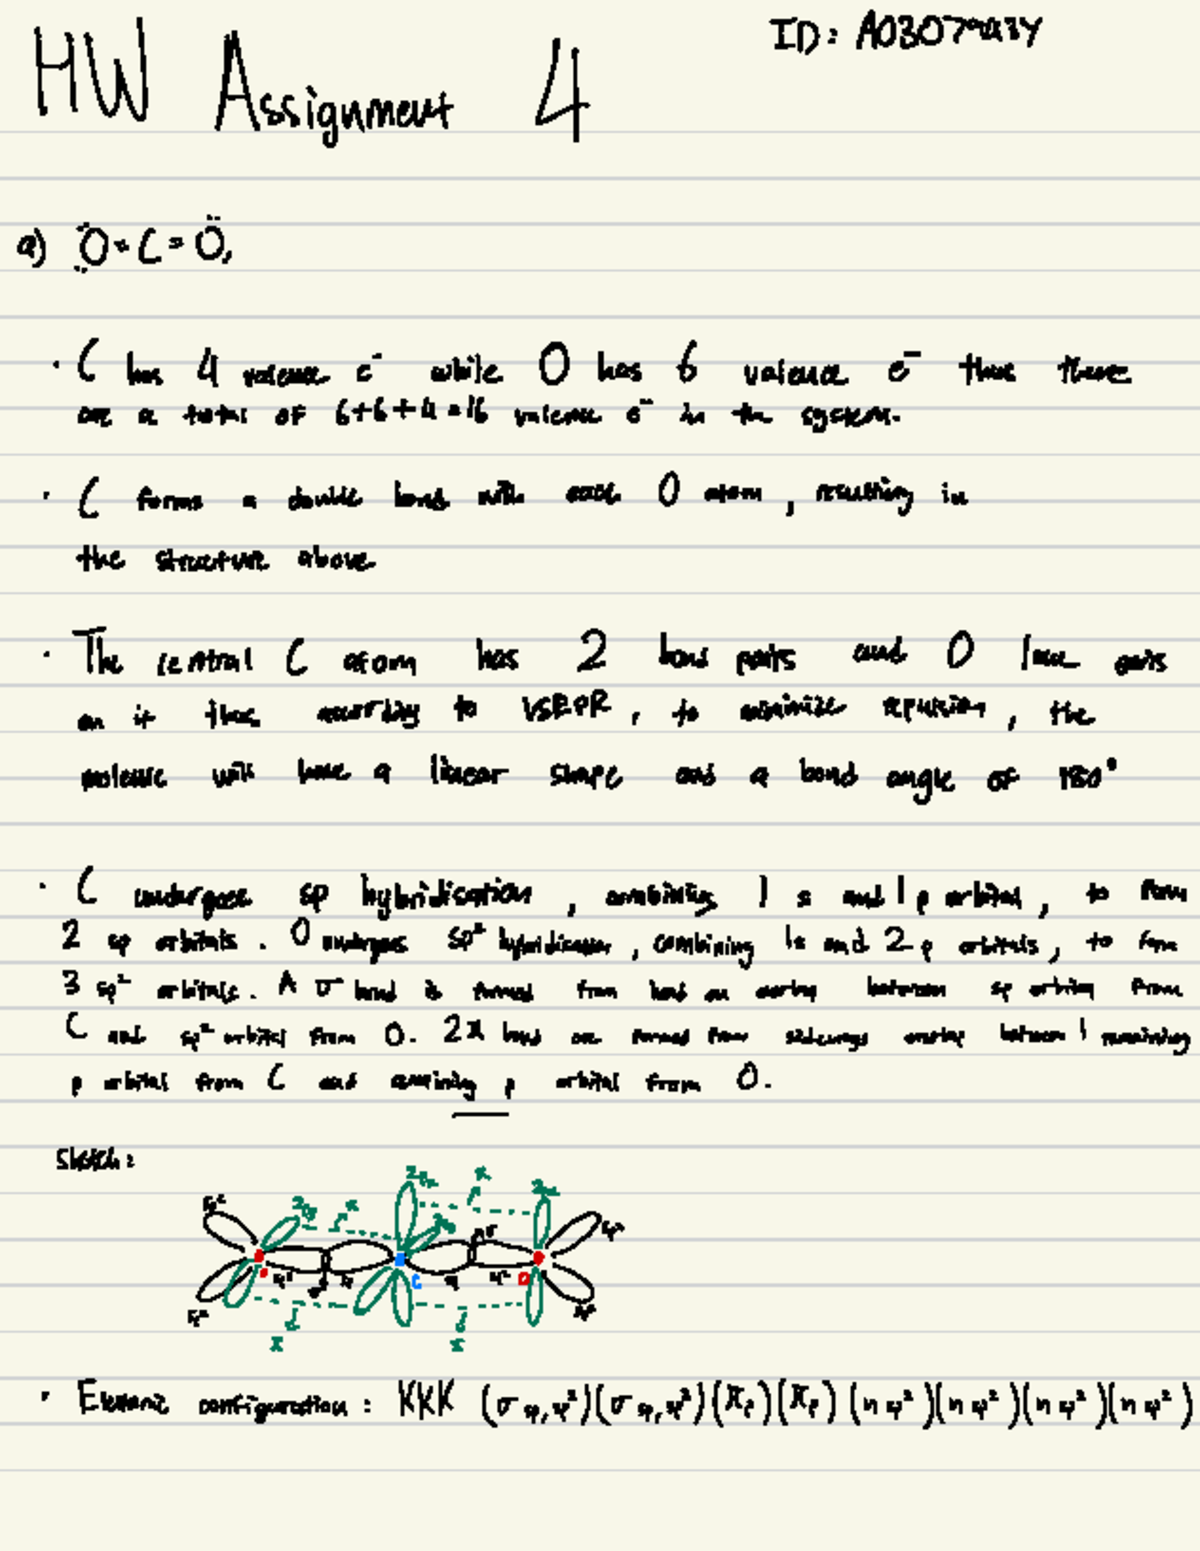 HW Assignment 4
a) O=C=O,
· C has 4 valence e⁻ while O has 6 valence e⁻ thus there
are a total of 6+6+4=16 valence e⁻ in the system.
· C forms a double bond with each O atom, resulting in
the structure above
· The central C atom has 2 bond pairs and 0 lone pairs
on it thus according to VSEPR, to minimize repulsion, the
molecule will have a linear shape and a bond angle of 180°
· C undergoes sp hybridisation, combining 1 s and 1 p orbital, to form
2 sp orbitals. O undergoes sp² hybridisation, combining 1s and 2 p orbitals, to form
3 sp² orbitals. A σ bond is formed from head on overlap between sp orbital from
C and sp² orbital from O. 2π bond are formed from sideways overlap between 1 remaining
p orbital from C and remaining p orbital from O.
Sketch:
sp² 2py π 2px π 2px sp²
2py σ
sp² sp C sp sp² O
sp² σ sp²
π π
· Electronic configuration: KKK (σ sp,sp²)(σ sp,sp²)(πp)(πp)(n sp²)(n sp²)(n sp²)(n sp²)